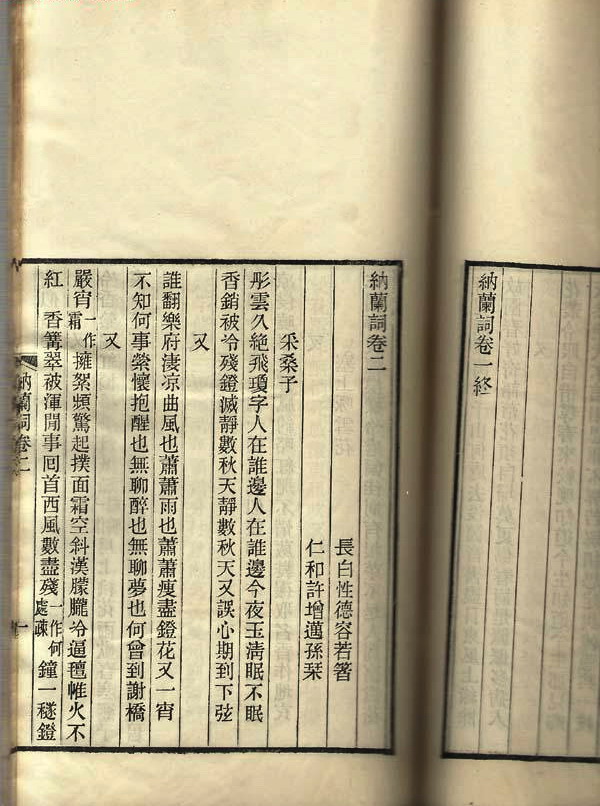 納蘭詞卷一終
納蘭詞卷二
長白性德容若箸
仁和許增邁孫栞
采桑子
彤雲久絕飛瓊字人在誰邊人在誰邊今夜玉淸眠不眠
香銷被冷殘鐙滅靜數秋天靜數秋天又誤心期到下弦
又
誰翻樂府淒凉曲風也蕭蕭雨也蕭蕭瘦盡鐙花又一宵
不知何事縈懷抱醒也無聊醉也無聊夢也何曾到謝橋
又
嚴宵一作霜擁絮頻驚起撲面霜空斜漢朦朧冷逼氊帷火不
紅　香篝翠被渾閒事囘首西風數盡殘一作何處疎鐘一穟鐙
納蘭詞卷二
一